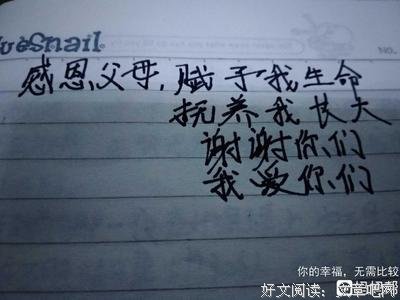 ueSnail
NO.
感恩父母，赋予我生命
抚养我长大
谢谢你们
我爱你们
你的幸福，无需比较
好文阅读：文章吧网